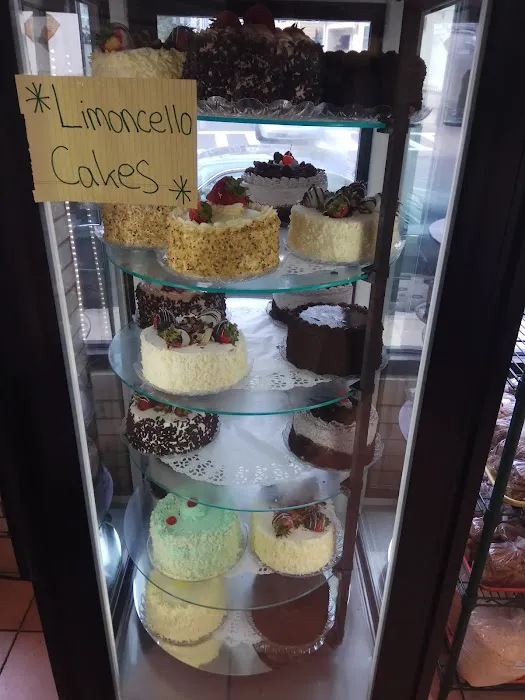 *Limoncello
Cakes*